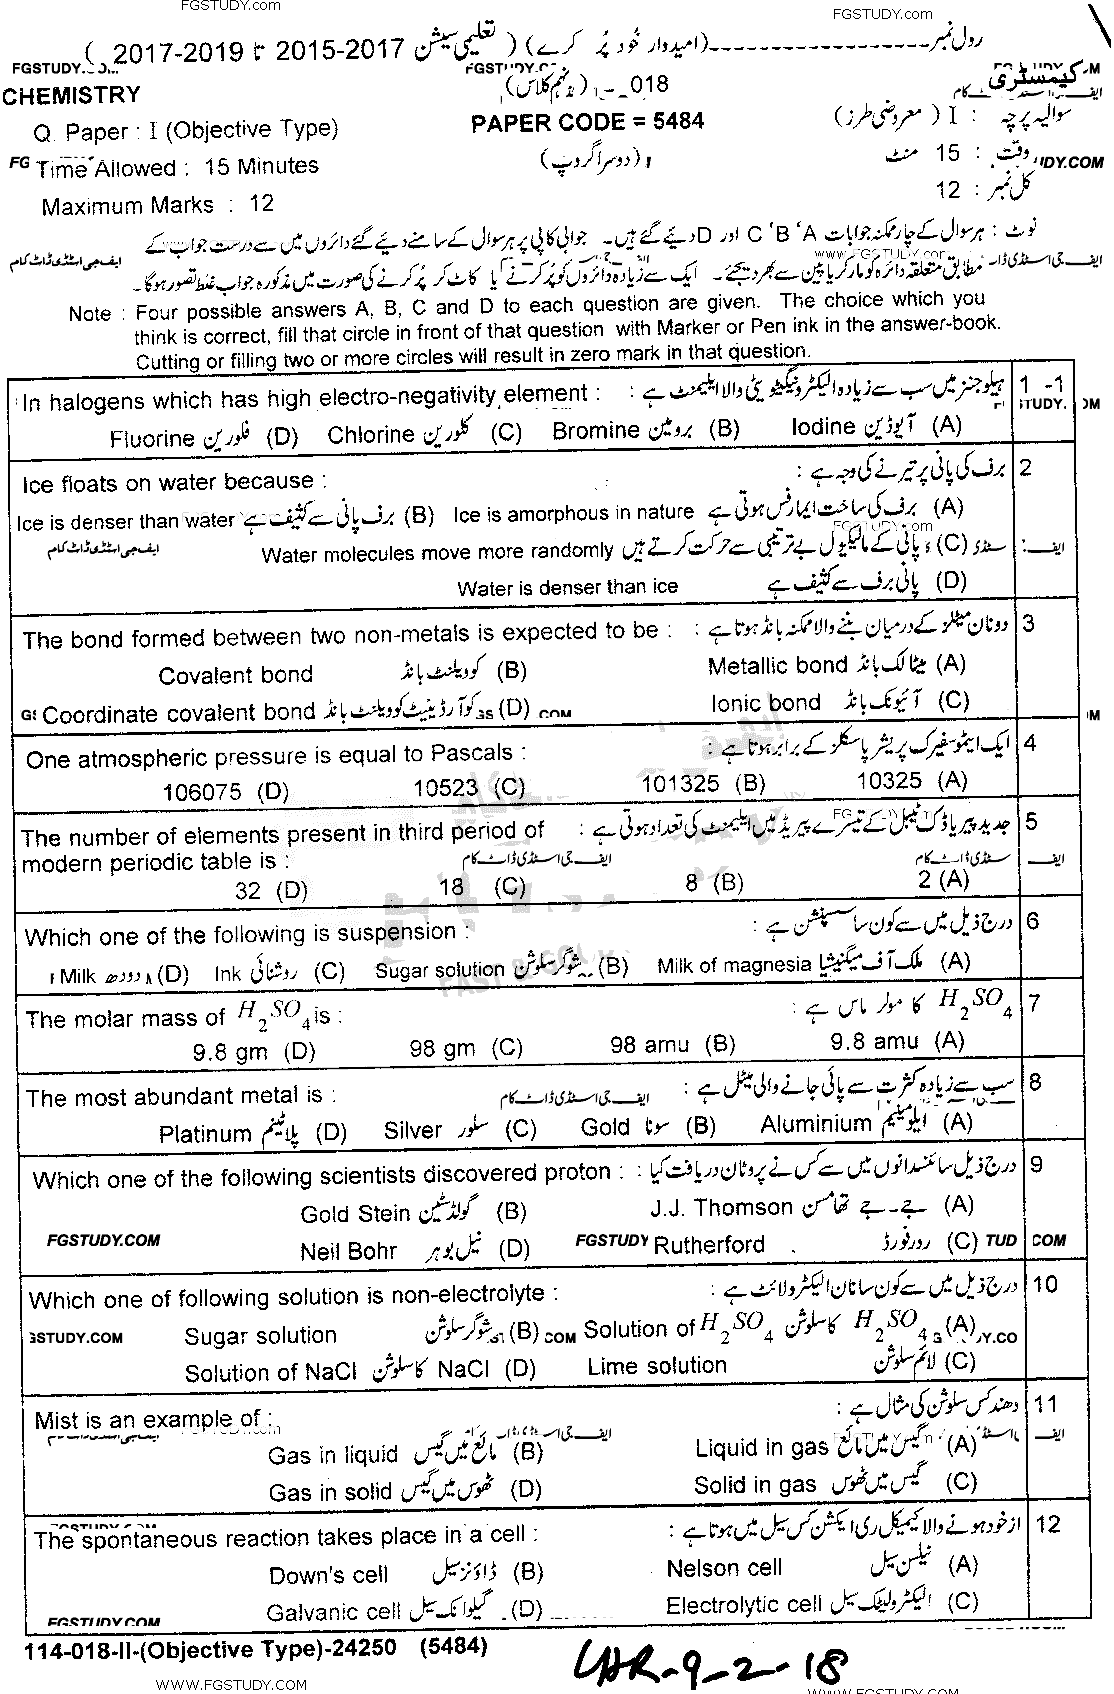 FGSTUDY.com
FGSTUDY.com
رولنمبر------------------(امیدوار خود پُر کرے) ( تعلیمی سیشن 2015-2017 تا 2017-2019 )
CHEMISTRY
کیمسٹری
Q. Paper : I (Objective Type)
PAPER CODE = 5484
سوالیہ پرچہ : I ( معروضی طرز)
Time Allowed : 15 Minutes
(دوسرا گروپ)
وقت : 15 منٹ
Maximum Marks : 12
کل نمبر : 12
نوٹ : ہر سوال کے چار ممکنہ جوابات A ، B ، C اور D دیئے گئے ہیں۔ جوابی کاپی پر ہر سوال کے سامنے دیئے گئے دائروں میں سے درست جواب کے
مطابق متعلقہ دائرہ کو مارکر یا پین سے بھر دیجئے۔ ایک سے زیادہ دائروں کو پُر کرنے یا کاٹ کر پُر کرنے کی صورت میں مذکورہ جواب غلط تصور ہوگا۔
Note : Four possible answers A, B, C and D to each question are given. The choice which you
think is correct, fill that circle in front of that question with Marker or Pen ink in the answer-book.
Cutting or filling two or more circles will result in zero mark in that question.
In halogens which has high electro-negativity element : ہیلوجنز میں سب سے زیادہ الیکٹرونیگیٹویٹی والا ایلیمنٹ ہے : 1 -1
Fluorine فلورین (D) Chlorine کلورین (C) Bromine برومین (B) Iodine آیوڈین (A)
Ice floats on water because : برف کی پانی پر تیرنے کی وجہ ہے : 2
Ice is denser than water برف پانی سے کثیف ہے (B) Ice is amorphous in nature برف کی ساخت ایمارفس ہوتی ہے (A)
Water molecules move more randomly پانی کے مالیکیول بے ترتیبی سے حرکت کرتے ہیں (C)
Water is denser than ice پانی برف سے کثیف ہے (D)
The bond formed between two non-metals is expected to be : دو نان میٹلز کے درمیان بننے والا ممکنہ بانڈ ہوتا ہے : 3
Covalent bond کوویلنٹ بانڈ (B) Metallic bond میٹالک بانڈ (A)
Coordinate covalent bond کوآرڈینیٹ کوویلنٹ بانڈ (D) Ionic bond آئیونک بانڈ (C)
One atmospheric pressure is equal to Pascals : ایک ایٹموسفیرک پریشر پاسکلز کے برابر ہوتا ہے : 4
106075 (D) 10523 (C) 101325 (B) 10325 (A)
The number of elements present in third period of جدید پیریاڈک ٹیبل کے تیسرے پیریڈ میں ایلیمنٹ کی تعداد ہوتی ہے : 5
modern periodic table is :
32 (D) 18 (C) 8 (B) 2 (A)
Which one of the following is suspension : درج ذیل میں سے کون سا سسپنشن ہے : 6
Milk دودھ (D) Ink روشنائی (C) Sugar solution شوگر سلوشن (B) Milk of magnesia ملک آف میگنیشیا (A)
The molar mass of H2SO4 is : H2SO4 کا مولر ماس ہے : 7
9.8 gm (D) 98 gm (C) 98 amu (B) 9.8 amu (A)
The most abundant metal is : سب سے زیادہ کثرت سے پائی جانے والی میٹل ہے : 8
Platinum پلاٹینم (D) Silver سلور (C) Gold سونا (B) Aluminium ایلومینیم (A)
Which one of the following scientists discovered proton : درج ذیل سائنسدانوں میں سے کس نے پروٹان دریافت کیا : 9
Gold Stein گولڈسٹین (B) J.J. Thomson جے۔جے تھامسن (A)
FGSTUDY.COM Neil Bohr نیل بوہر (D) FGSTUDY Rutherford ردرفورڈ (C) TUD COM
Which one of following solution is non-electrolyte : درج ذیل میں سے کون سا نان الیکٹرولائٹ ہے : 10
GSTUDY.COM Sugar solution شوگر سلوشن (B) COM Solution of H2SO4 کا سلوشن H2SO4 (A)
Solution of NaCl کا سلوشن NaCl (D) Lime solution لائم سلوشن (C)
Mist is an example of : دھند کس سلوشن کی مثال ہے : 11
Gas in liquid مائع میں گیس (B) Liquid in gas گیس میں مائع (A)
Gas in solid ٹھوس میں گیس (D) Solid in gas گیس میں ٹھوس (C)
The spontaneous reaction takes place in a cell : از خود ہونے والا کیمیکل ری ایکشن کس سیل میں ہوتا ہے : 12
Down's cell ڈاؤنز سیل (B) Nelson cell نیلسن سیل (A)
FGSTUDY.COM Galvanic cell گیلوانک سیل (D) Electrolytic cell الیکٹرولیٹک سیل (C)
114-018-II-(Objective Type)-24250 (5484)
LHR-9-2-18
WWW.FGSTUDY.COM